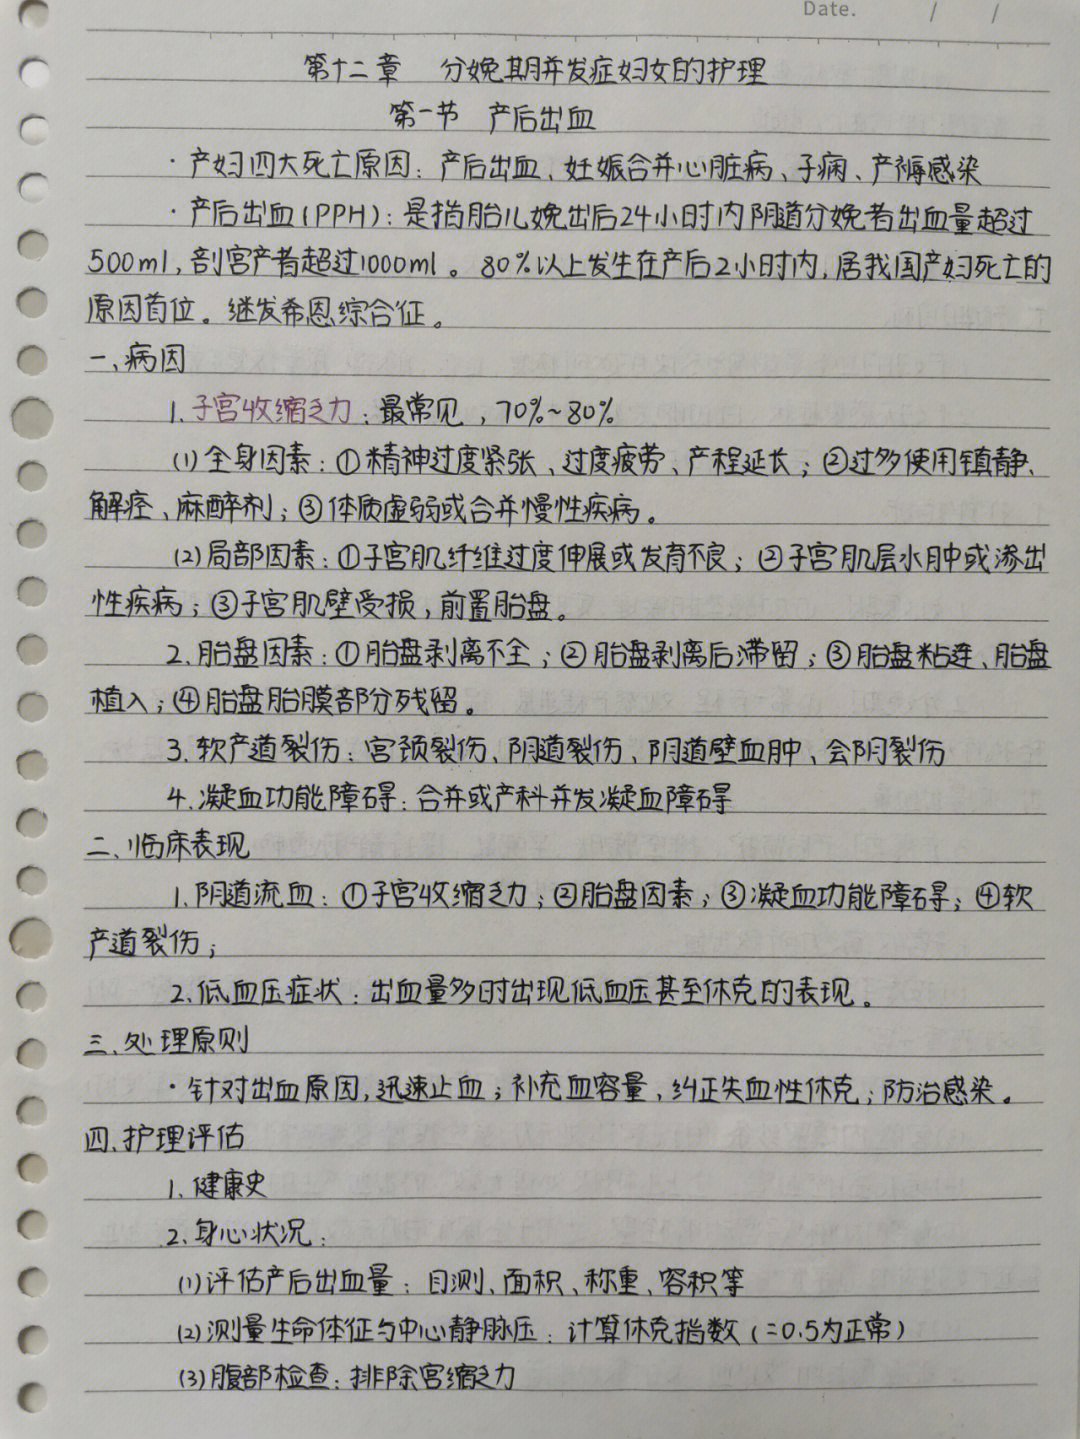 Date. / /
第十二章 分娩期并发症妇女的护理
第一节 产后出血
·产妇四大死亡原因：产后出血、妊娠合并心脏病、子痫、产褥感染
·产后出血(PPH)：是指胎儿娩出后24小时内阴道分娩者出血量超过
500ml,剖宫产者超过1000ml。80%以上发生在产后2小时内,居我国产妇死亡的
原因首位。继发希恩综合征。
一、病因
1.子宫收缩乏力：最常见，70%~80%
(1)全身因素：①精神过度紧张、过度疲劳、产程延长；②过多使用镇静、
解痉、麻醉剂；③体质虚弱或合并慢性疾病。
(2)局部因素：①子宫肌纤维过度伸展或发育不良；②子宫肌层水肿或渗出
性疾病；③子宫肌壁受损,前置胎盘。
2.胎盘因素：①胎盘剥离不全；②胎盘剥离后滞留；③胎盘粘连、胎盘
植入；④胎盘胎膜部分残留。
3.软产道裂伤：宫颈裂伤、阴道裂伤、阴道壁血肿、会阴裂伤
4.凝血功能障碍：合并或产科并发凝血障碍
二、临床表现
1.阴道流血：①子宫收缩乏力；②胎盘因素；③凝血功能障碍；④软
产道裂伤；
2.低血压症状：出血量多时出现低血压甚至休克的表现。
三、处理原则
·针对出血原因,迅速止血；补充血容量,纠正失血性休克；防治感染。
四、护理评估
1.健康史
2.身心状况：
(1)评估产后出血量：目测、面积、称重、容积等
(2)测量生命体征与中心静脉压：计算休克指数(=0.5为正常)
(3)腹部检查：排除宫缩乏力